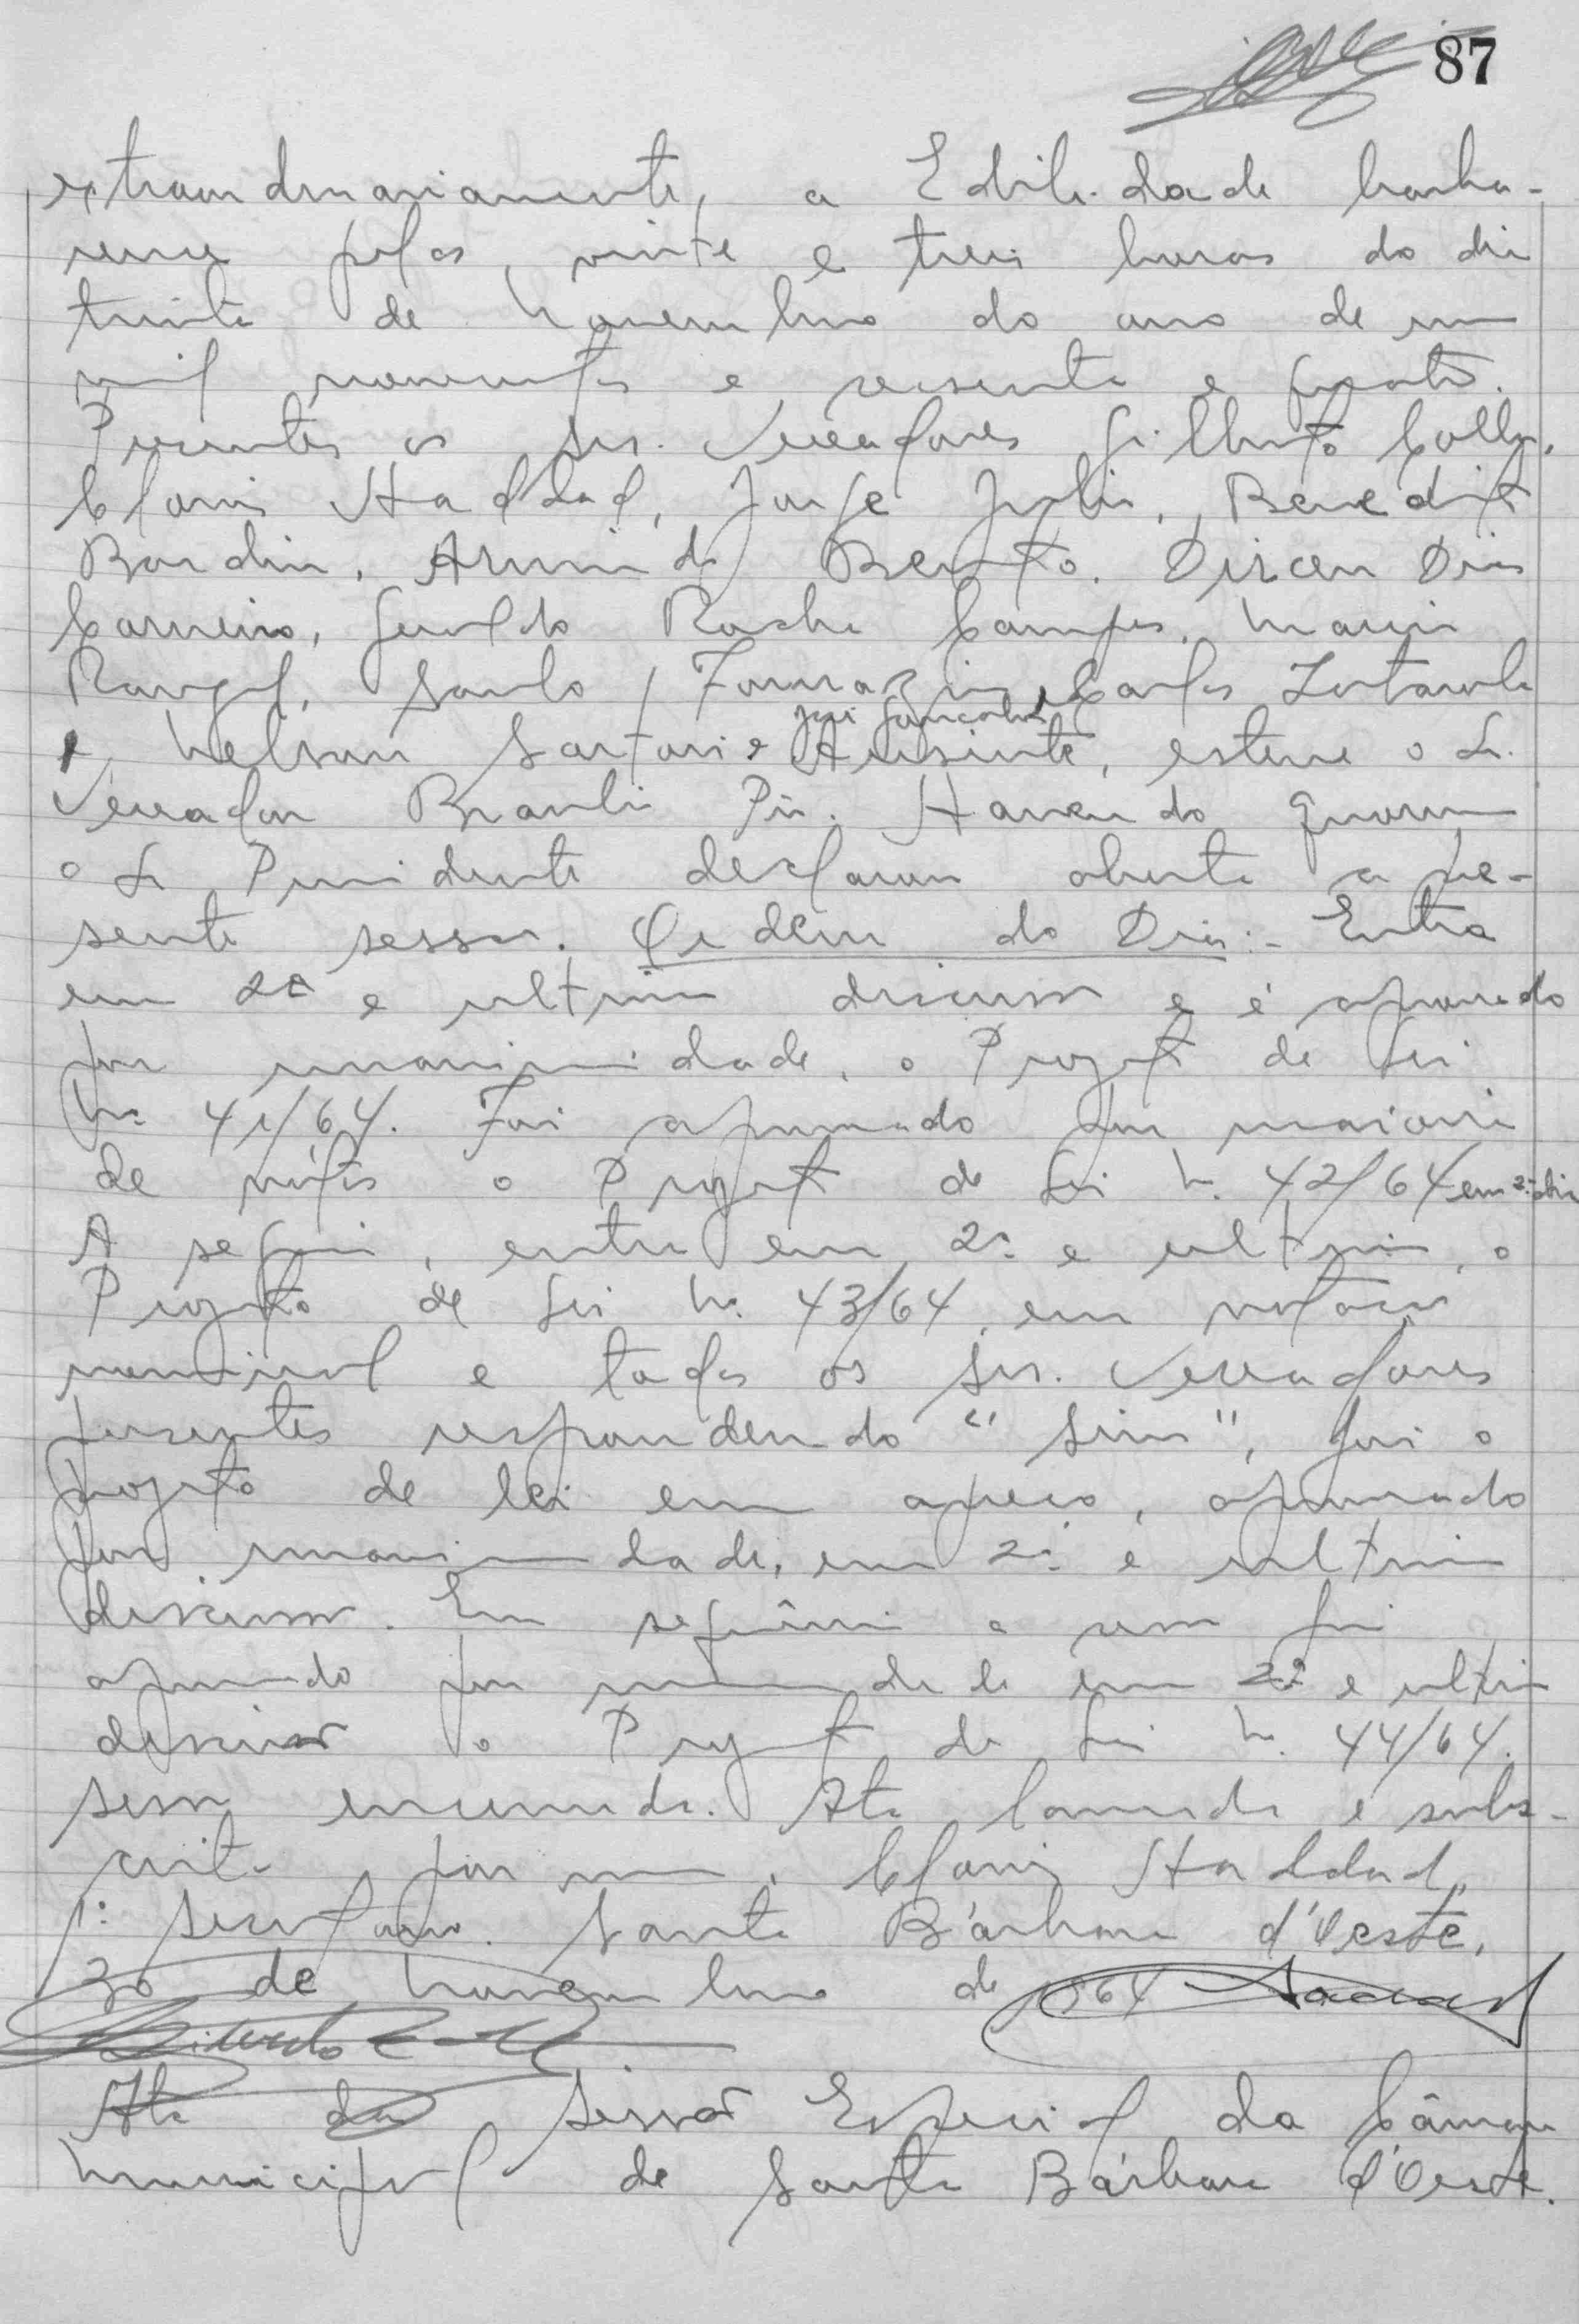 87
extraordinariamente, a Edilidade barba-
rense pelas vinte e tres horas do dia
trinta de Novembro do ano de um
mil novecentos e sessenta e quatro.
Presentes os srs. Vereadores Gilberto Colla,
Clovis Haddad, Jorge Julio, Benedito
Bordin, Armindo Bento, Dirceu Dias
Carneiro, Geraldo Rocha Campos, Mario
Rangel, Santo Formazin, Carlos Lotarola
José Gonçalves
, Nelson Sartori e Ausente, esteve o Sr.
Vereador Braulio Pio. Havendo quorum
o Sr Presidente declarou aberta a pre-
sente sessão. Ordem do Dia:- Entra
em 2a e ultima discussão e é aprovado
por unanimidade, o Projeto de Lei
Nº 41/64. Foi aprovado por maioria
de votos o Projeto de Lei N. 42/64 em 2ª dis
A seguir, entra em 2ª e ultima, o
Projeto de Lei Nº 43/64, em votação
nominal e todos os srs. Vereadores
presentes respondendo "sim", foi o
projeto de lei em apreço, aprovado
por unanimidade, em 2ª e ultima
discussão. Em seguida a
aprovado por unanimidade em 2ª e ultima
discussão o Projeto de Lei N. 44/64.
sessão encerrada. Ata lavrada e subs-
crita por mim, Clovis Haddad,
1º Secretario. Santa Bárbara d'Oeste,
30 de Novembro de 1964
Ata da Sessão Especial da Câmara
Municipal de Santa Bárbara d'Oeste.